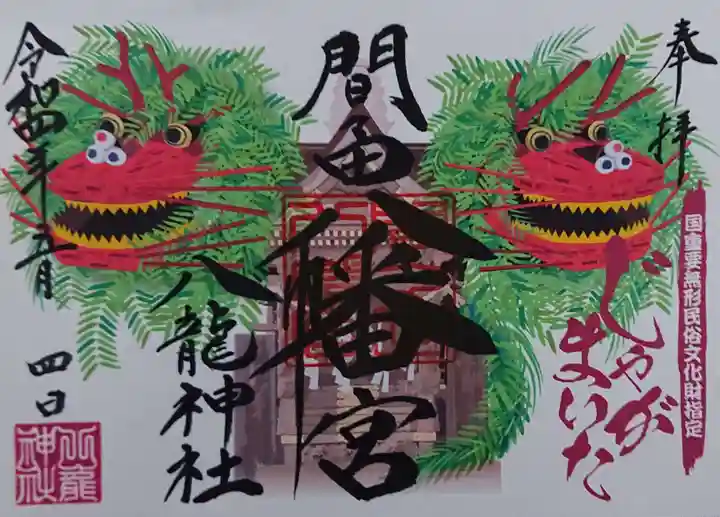 奉拝
国重要無形民俗文化財指定
じゃが
まいた
間々田八幡宮
八龍神社
令和四年五月
四日
八龍
神社